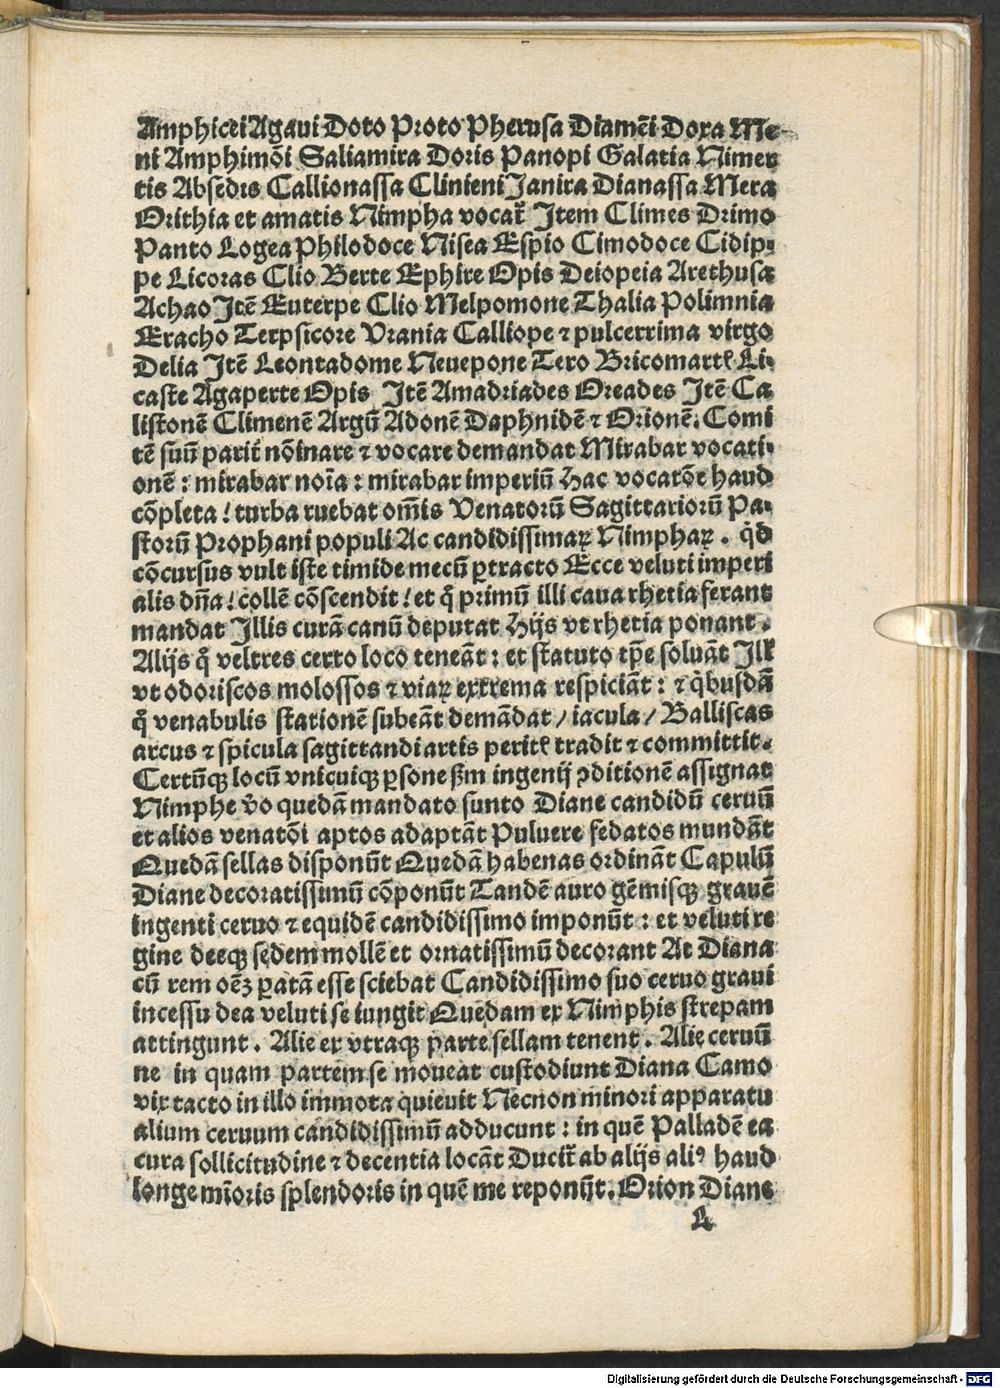 Amphicei Agaui Doto Proto Pherusa Diamēi Doxa Me-
ni Amphimōi Saliamira Doris Panopi Galatia Nimer
tis Absedis Callionassa Clinieni Janira Dianassa Mera
Orithia et amatis Nimpha vocat᷑ Item Climes Drimo
Panto Logea Philodoce Nisea Espio Cimodoce Cidip-
pe Licoras Clio Berte Ephire Opis Deiopeia Arethusa
Achao Itē Euterpe Clio Melpomone Thalia Polimnia
Eracho Terpsicore Vrania Calliope ⁊ pulcerrima virgo
Delia Itē Leontadome Neuepone Tero Bricomartꝭ Li-
caste Agaperte Opis Itē Amadriades Oreades Itē Ca
listonē Climenē Argū Adonē Daphnidē ⁊ Orionē. Comi
tē suū parit᷑ nōinare ⁊ vocare demandat Mirabar vocati-
onē : mirabar noīa : mirabar imperiū Hac vocatōe haud
cōpleta ! turba ruebat om̄is Venatorū Sagittariorū Pa-
storū Prophani populi Ac candidissimaꝝ Nimphaꝝ . qd̄
cōcursus vult iste timide mecū ꝑtracto Ecce veluti imperi
alis dn̄a ! collē cōscendit ! et q̄ primū illi caua rhetia ferant
mandat Illis curā canū deputat Hijs vt rhetia ponant .
Alijs q̄ veltres certo loco teneāt : et statuto tp̄e soluāt Illꝭ
vt odoriscos molossos ⁊ viaꝝ extrema respiciāt : ⁊ q̄busdā
q̄ venabulis stationē subeāt demādat / iacula / Balliscas
arcus ⁊ spicula sagittandi artis peritꝭ tradit ⁊ committit .
Certūqꝫ locū vnicuiqꝫ ꝑsone ẜm ingenij ꝯditionē assignat
Nimphe v̄o quedā mandato sunto Diane candidū ceruū
et alios venatōi aptos adaptāt Puluere fedatos mundāt
Quedā sellas disponūt Quedā habenas ordināt Capulū
Diane decoratissimū cōponūt Tandē auro gēmisqꝫ grauē
ingenti ceruo ⁊ equidē candidissimo imponūt : et veluti re
gine deeqꝫ sedem mollē et ornatissimū decorant At Diana
cū rem oēꝫ ꝑatā esse sciebat Candidissimo suo ceruo graui
incessu dea veluti se iungit Quedam ex Nimphis strepam
attingunt . Alie ex vtraqꝫ parte sellam tenent . Alie ceruū
ne in quam partem se moueat custodiunt Diana Camo
vix tacto in illo immota quieuit Necnon minori apparatu
alium ceruum candidissimū adducunt : in quē Palladē ea
cura sollicitudine ⁊ decentia locāt Ducit᷑ ab alijs aliꝰ haud
longe mīoris splendoris in quē me reponūt. Orion Diane
L
Digitalisierung gefördert durch die Deutsche Forschungsgemeinschaft - DFG